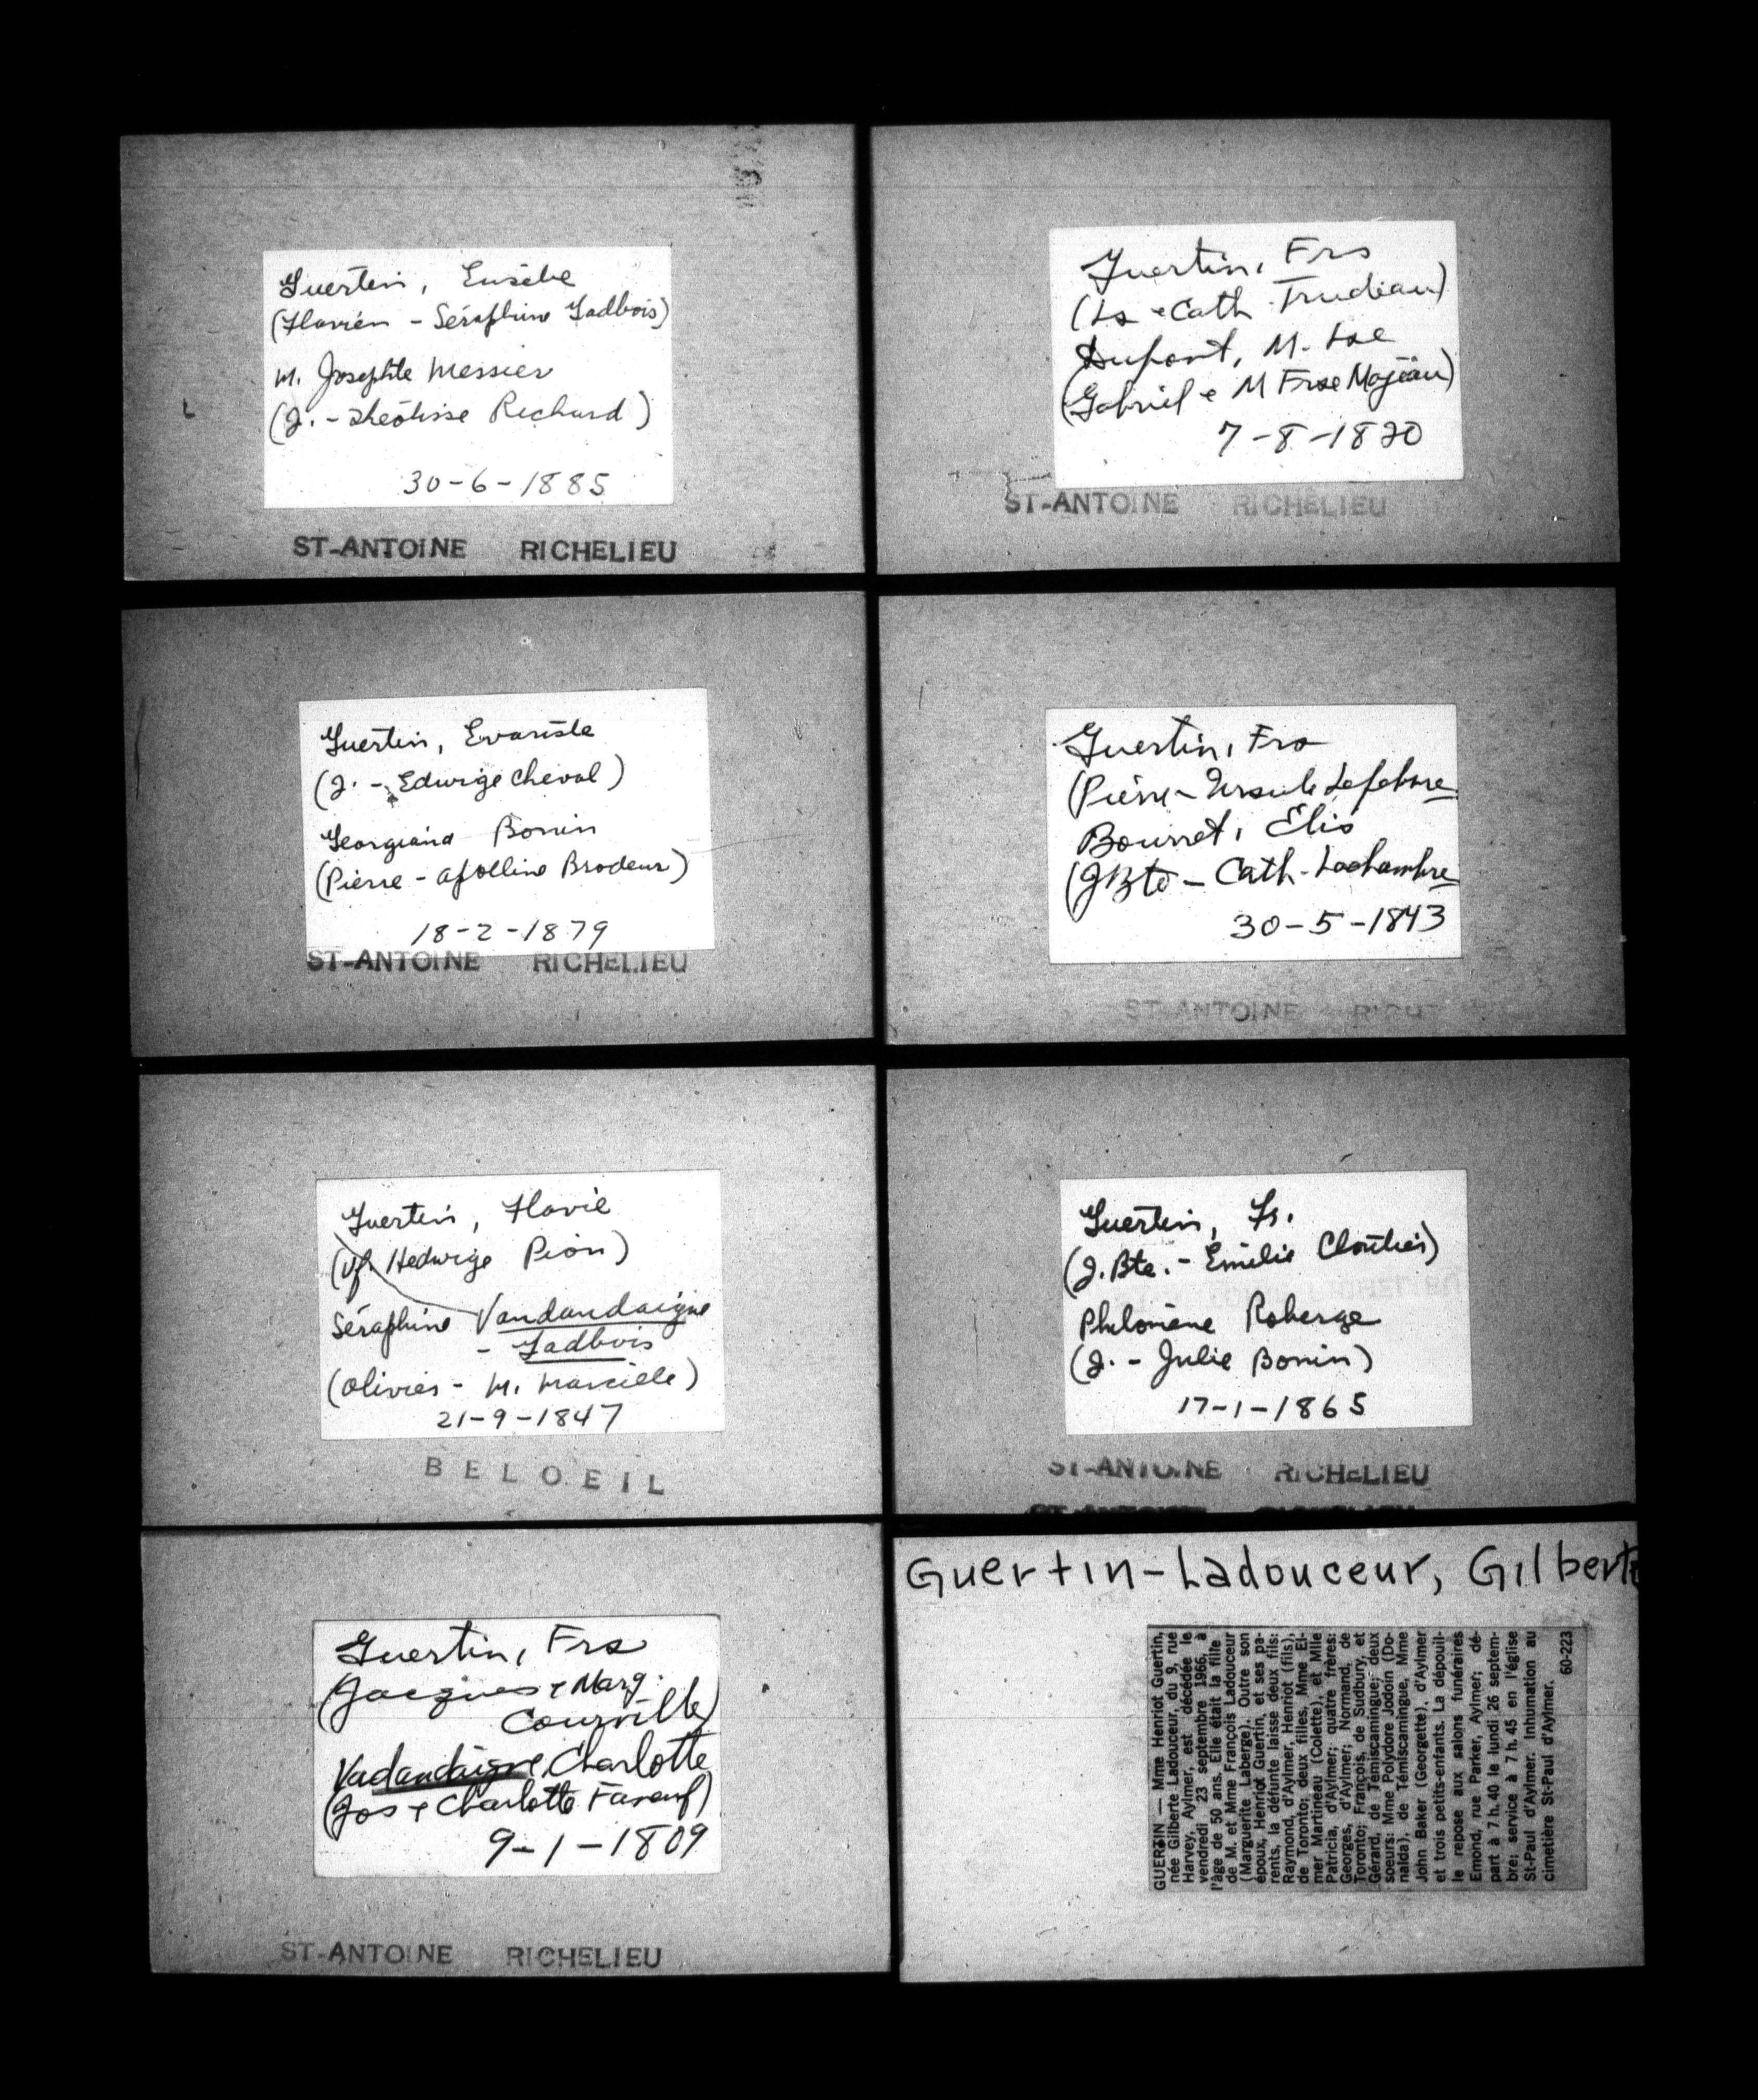 Guertin, Eusèbe
(Flavien - Séraphine Gadbois)
M. Josephte Messier
(J. - Théotisse Richard)
30-6-1885
ST-ANTOINE RICHELIEU
Guertin, Frs
(Ls & Cath Trudeau)
Dupont, M. Lse
(Gabriel & M Frse Mojeau)
7-8-1820
ST-ANTOINE RICHELIEU
Guertin, Evariste
(J. - Edwige Cheval)
Georgiana Bonin
(Pierre - Apolline Brodeur)
18-2-1879
ST-ANTOINE RICHELIEU
Guertin, Frs
(Pierre - Ursule Lefebvre
Bourret, Elis
(JBte - Cath. Lachambre
30-5-1843
ST-ANTOINE
Guertin, Flavie
(vf. Hedwige Pion)
Séraphine Vandandaigue
- Gadbois
(Olivier - M. Marcille)
21-9-1847
BELOEIL
Guertin, Fs.
(J. Bte. - Emélie Cloutier)
Philomène Roberge
(J. - Julie Bonin)
17-1-1865
ST-ANTOINE RICHELIEU
Guertin, Frs
(Jacques & Marg.
Courville)
Vadandaigue, Charlotte
(Jos & Charlotte Faneuf)
9-1-1809
ST-ANTOINE RICHELIEU
Guertin-Ladouceur, Gilberte
GUERTIN — Mme Henriot Guertin,
née Gilberte Ladouceur, du 9, rue
Harvey, Aylmer, est décédée le
vendredi 23 septembre 1966, à
l'âge de 50 ans. Elle était la fille
de M. et Mme François Ladouceur
(Marguerite Laberge). Outre son
époux, Henriot Guertin, et ses pa-
rents, la défunte laisse deux fils:
Raymond, d'Aylmer, Henriot (fils),
de Toronto; deux filles, Mme El-
mer Martineau (Colette), et Mlle
Patricia, d'Aylmer; quatre frères:
Georges, d'Aylmer; Normand, de
Toronto; François, de Sudbury, et
Gérard, de Témiscamingue; deux
soeurs: Mme Polydore Jodoin (Do-
nalda), de Témiscamingue, Mme
John Baker (Georgette), d'Aylmer
et trois petits-enfants. La dépouil-
le repose aux salons funéraires
Emond, rue Parker, Aylmer; dé-
part à 7 h. 40 le lundi 26 septem-
bre; service à 7 h. 45 en l'église
St-Paul d'Aylmer. Inhumation au
cimetière St-Paul d'Aylmer.
60-223